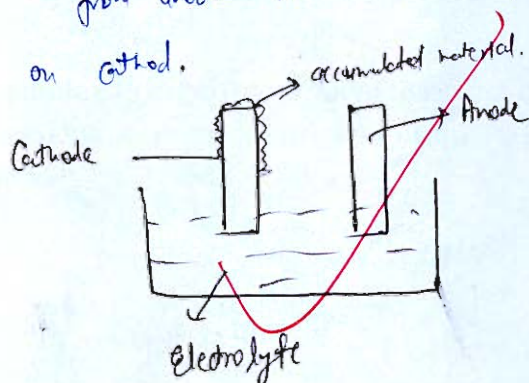 from
on Cathod.
accumulated material.
Anode
Cathode
Electrolyte